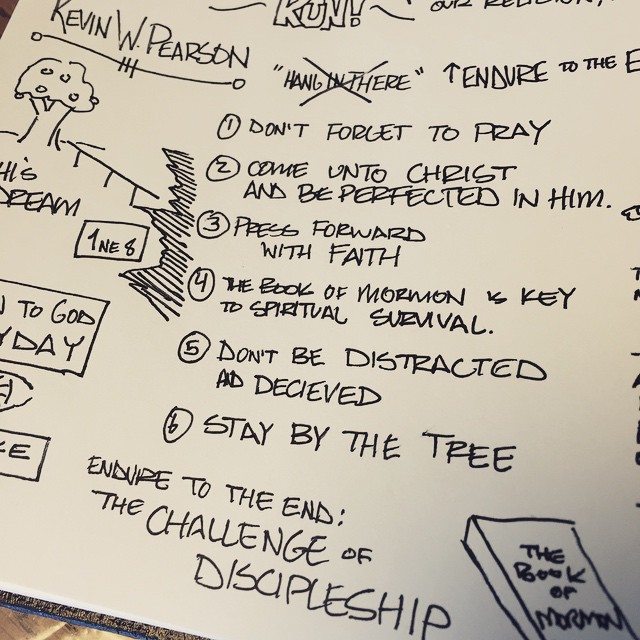 KEVIN W. PEARSON
RUN!
OUR RELIGION,
"HANG IN THERE" ↑ ENDURE TO THE E
① DON'T FORGET TO PRAY
② COME UNTO CHRIST
AND BE PERFECTED IN HIM.
③ PRESS FORWARD
WITH FAITH
④ THE BOOK OF MORMON IS KEY
TO SPIRITUAL SURVIVAL.
⑤ DON'T BE DISTRACTED
AND DECIEVED
⑥ STAY BY THE TREE
ENDURE TO THE END:
THE CHALLENGE OF
DISCIPLESHIP
HI'S
DREAM
1 NE 8
N TO GOD
YDAY
KE
THE
BOOK
OF
MORMON